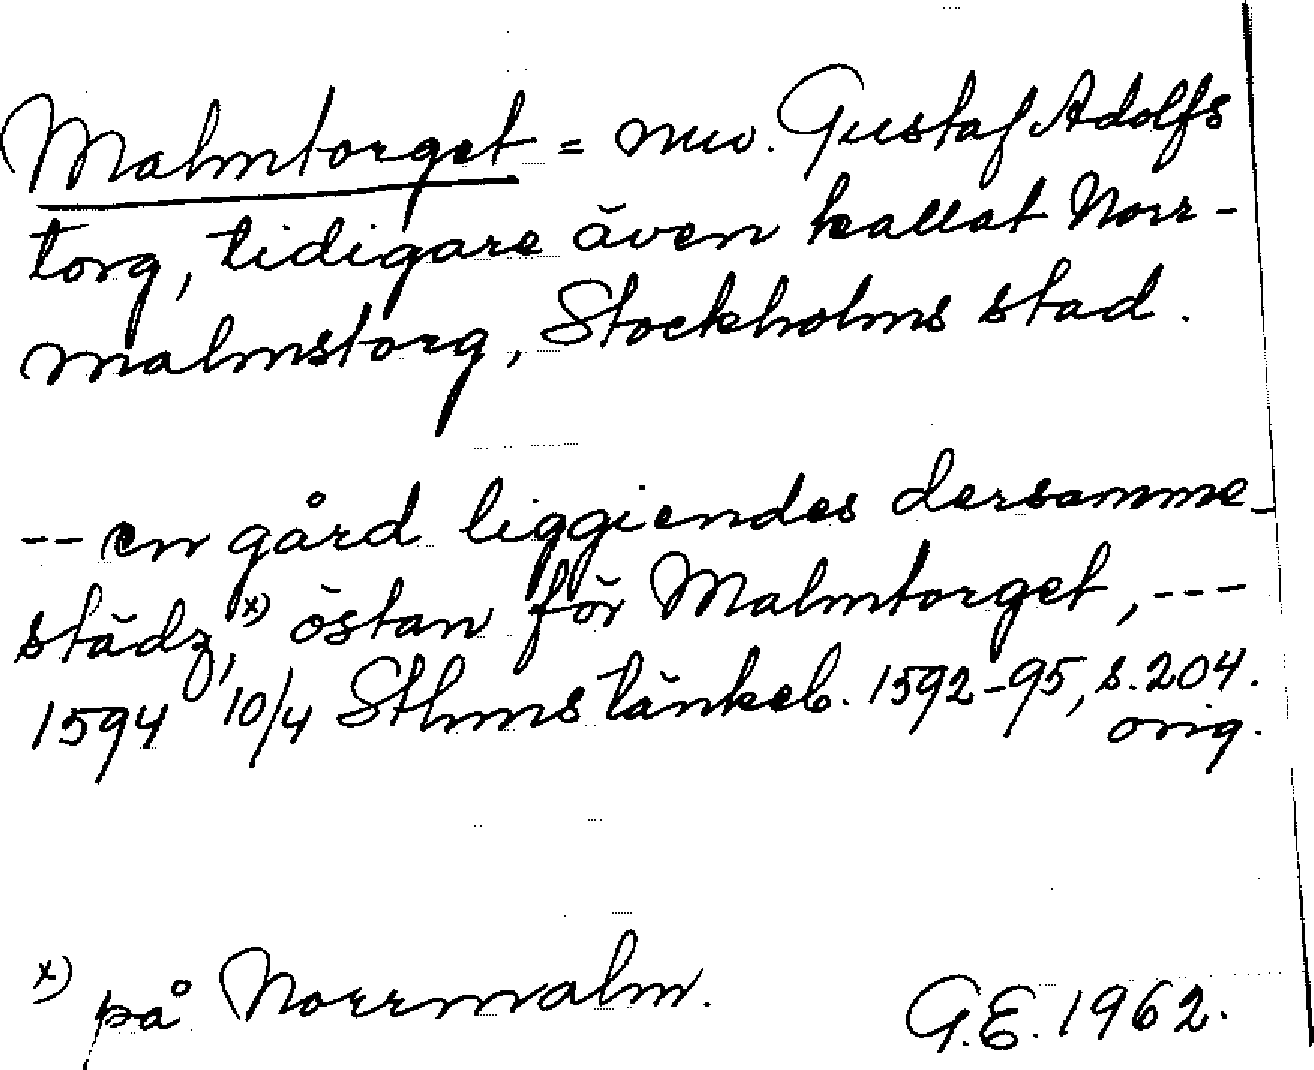 Malmtorget = nuv. Gustaf Adolfs
torg, tidigare även kallat Norr-
malmstorg, Stockholms stad.
-- en gård liggiendes dersamme-
städz,x) östan för Malmtorget, ---
1594 10/4 Sthms tänkeb. 1592-95, s. 204.
orig.
x) på Norrmalm.
G.E. 1962.